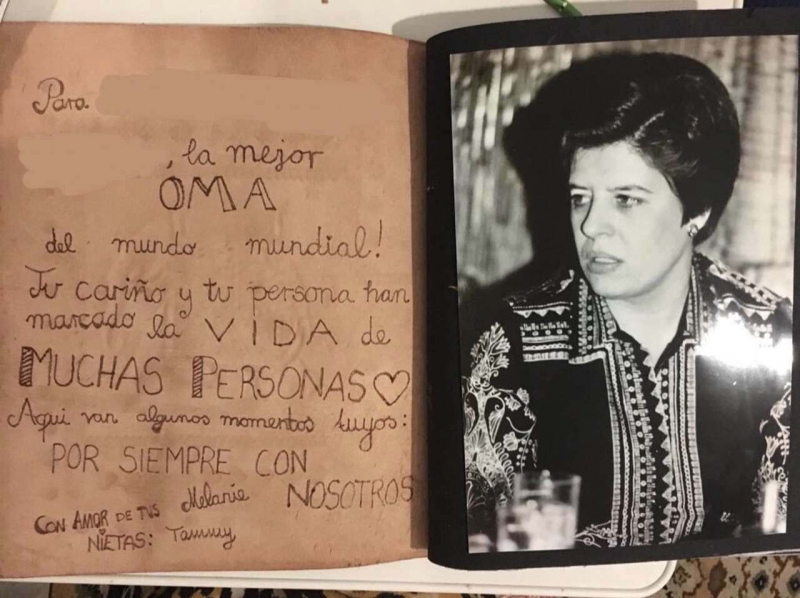 Para
, la mejor
OMA
del mundo mundial!
Tu cariño y tu persona han
marcado la VIDA de
MUCHAS PERSONAS♡
Aqui van algunos momentos tuyos:
POR SIEMPRE CON
NOSOTROS
CON AMOR DE TUS
NIETAS: Melanie
Tammy